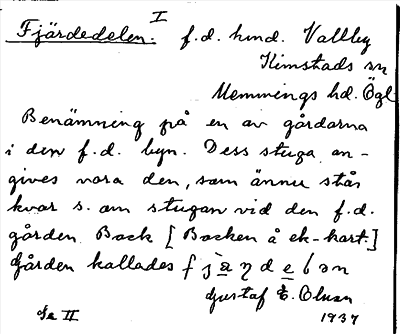 I
Fjärdedelen. f.d. hmd. Vallby
Kimstads sn
Memmings hd. Ögl
Benämning på en av gårdarna
i den f.d. byn. Dess stuga an-
gives vara den, som ännu står
kvar s. om stugan vid den f.d.
gården Back [Backen å ek-kart.]
Gården kallades
Gustaf E. Olson
Se II 1937